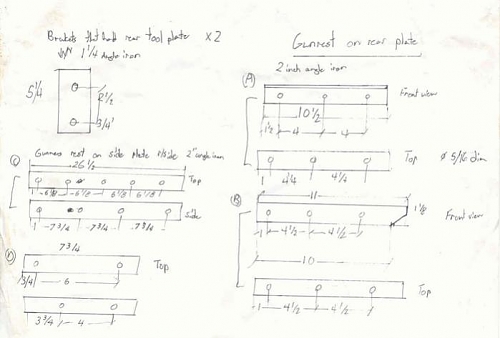 Brackets that hold rear tool plate x2
1 1/4 angle iron
5 1/4
2 1/2
3/4
Gunrest on rear plate
2 inch angle iron
(A)
Front view
10 1/2
1 1/2 4 4
Top Ø 5/16 dim
1 4 1/4 4 1/4
(C) Gunness rest on side plate r/side 2" angle iron
26 1/2
Top
1 6 1/8 6 1/8 6 1/8 6 1/8
Side
1 7 3/4 7 3/4 7 3/4
(B)
11
1 1/8
Front view
1 4 1/2 4 1/2
10
Top
1 4 1/2 4 1/2
(D)
7 3/4
Top
3/4 6
3 3/4 4